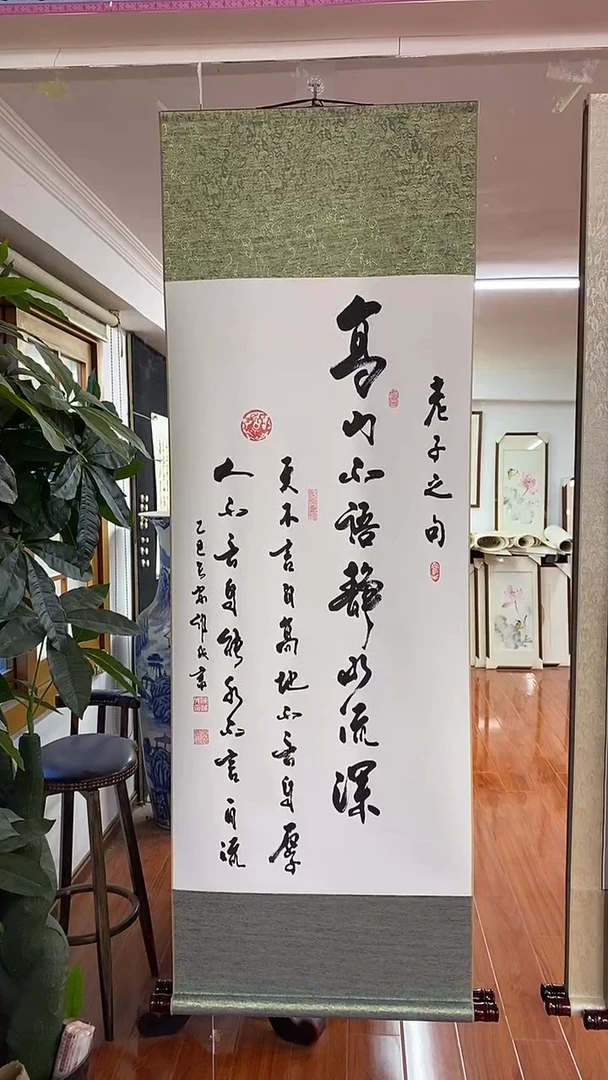 老子之句
高山不語静水流深
天不言自高地不言自厚
人不言自能水不言自流
乙巳